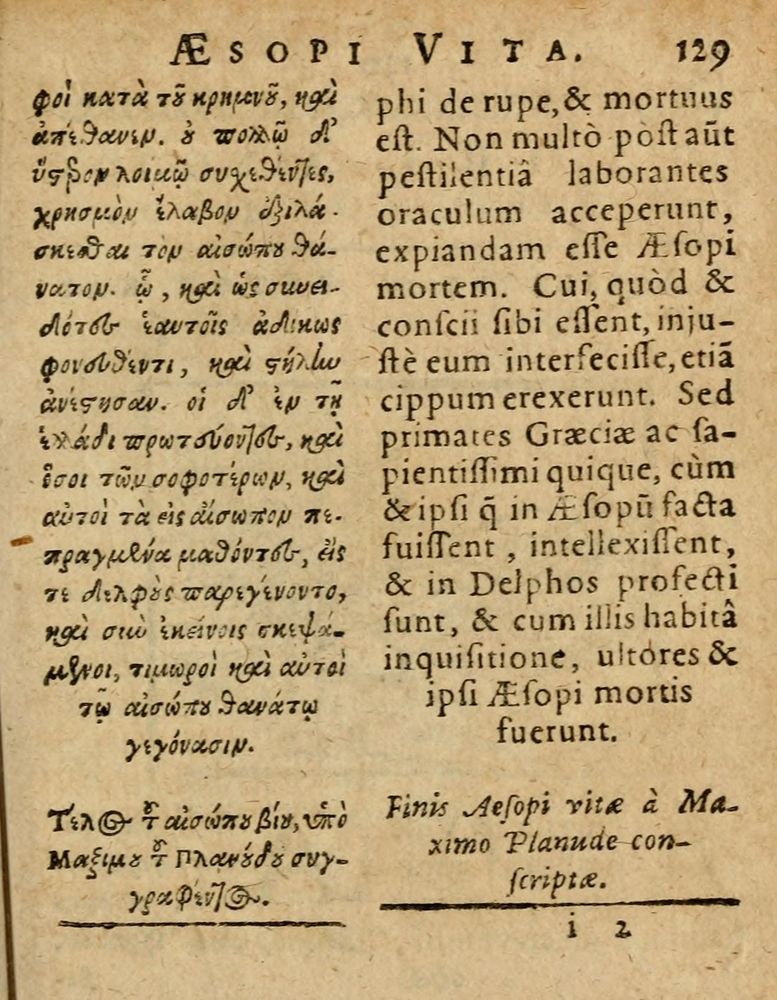 ÆSOPI VITA. 129
φοὶ κατὰ τοῦ κρημνοῦ, καὶ
ἀπέθανεν. οὐ πολλῷ δ'
ὕστερον λοιμῷ συχεθέντες,
χρησμὸν ἔλαβον ἐξιλά-
σκεσθαι τὸν αἰσώπου θά-
νατον. ᾧ, καὶ ὡς συνει-
δότες ἑαυτοῖς ἀδίκως
φονευθέντι, καὶ στήλην
ἀνέστησαν. οἱ δ' ἐν τῇ
ἑλλάδι πρωτεύοντες, καὶ
ὅσοι τῶν σοφοτέρων, καὶ
αὐτοὶ τὰ εἰς αἴσωπον πε-
πραγμένα μαθόντες, εἴς
τε δελφοὺς παρεγένοντο,
καὶ σὺν ἐκείνοις σκεψά-
μενοι, τιμωροὶ καὶ αὐτοὶ
τῷ αἰσώπου θανάτῳ
γεγόνασιν.
Τέλος τοῦ αἰσώπου βίου, ὑπὸ
Μαξίμου τοῦ Πλανούδου συγ-
γραφέντος.
phi de rupe, & mortuus
est. Non multò pòst aūt
pestilentiâ laborantes
oraculum acceperunt,
expiandam esse Æsopi
mortem. Cui, quòd &
conscii sibi essent, inju-
stè eum interfecisse, etiã
cippum erexerunt. Sed
primates Græciæ ac sa-
pientissimi quique, cùm
& ipsi q̃ in Æsopū facta
fuissent, intellexissent,
& in Delphos profecti
sunt, & cum illis habitâ
inquisitione, ultores &
ipsi Æsopi mortis
fuerunt.
Finis Aesopi vitæ à Ma-
ximo Planude con-
scriptæ.
i 2